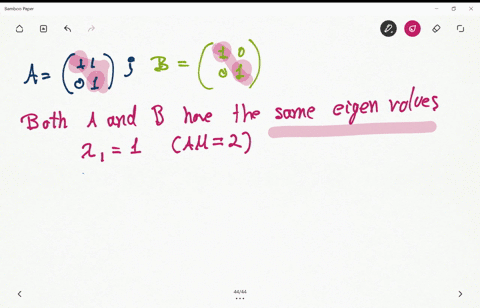 Bamboo Paper
A = (1 1
0 1) ; B = (1 0
0 1)
Both A and B have the same eigen values
λ₁ = 1 (AM = 2)
44/44